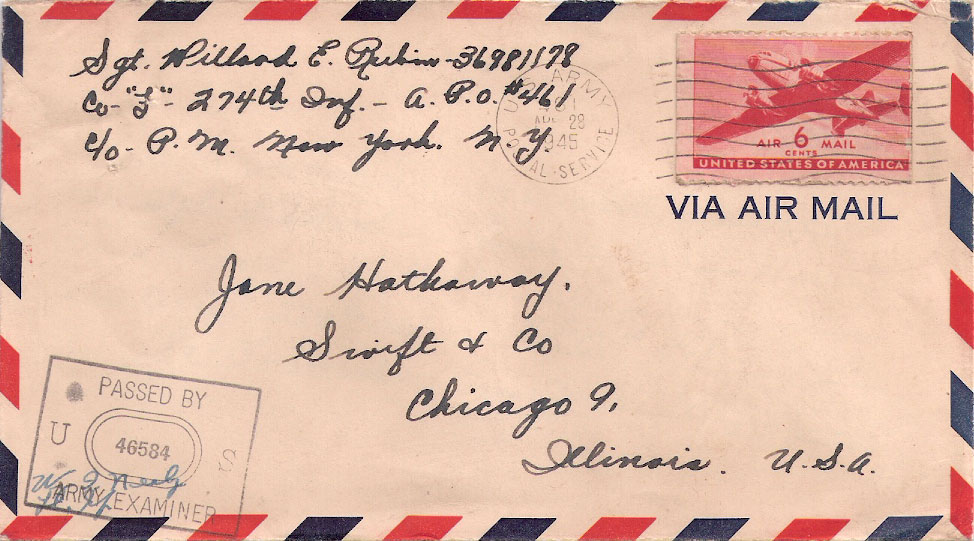 Sgt. Willard E. Rubin - 36981178
Co - "L" - 274th Inf. - A.P.O. #461
c/o - P.M. New York. N.Y.
U.S. ARMY
28
1945
POSTAL SERVICE
AIR 6 MAIL
CENTS
UNITED STATES OF AMERICA
VIA AIR MAIL
Jane Hathaway.
Swift & Co
Chicago 9.
Illinois. U.S.A.
PASSED BY
U 46584 S
ARMY EXAMINER